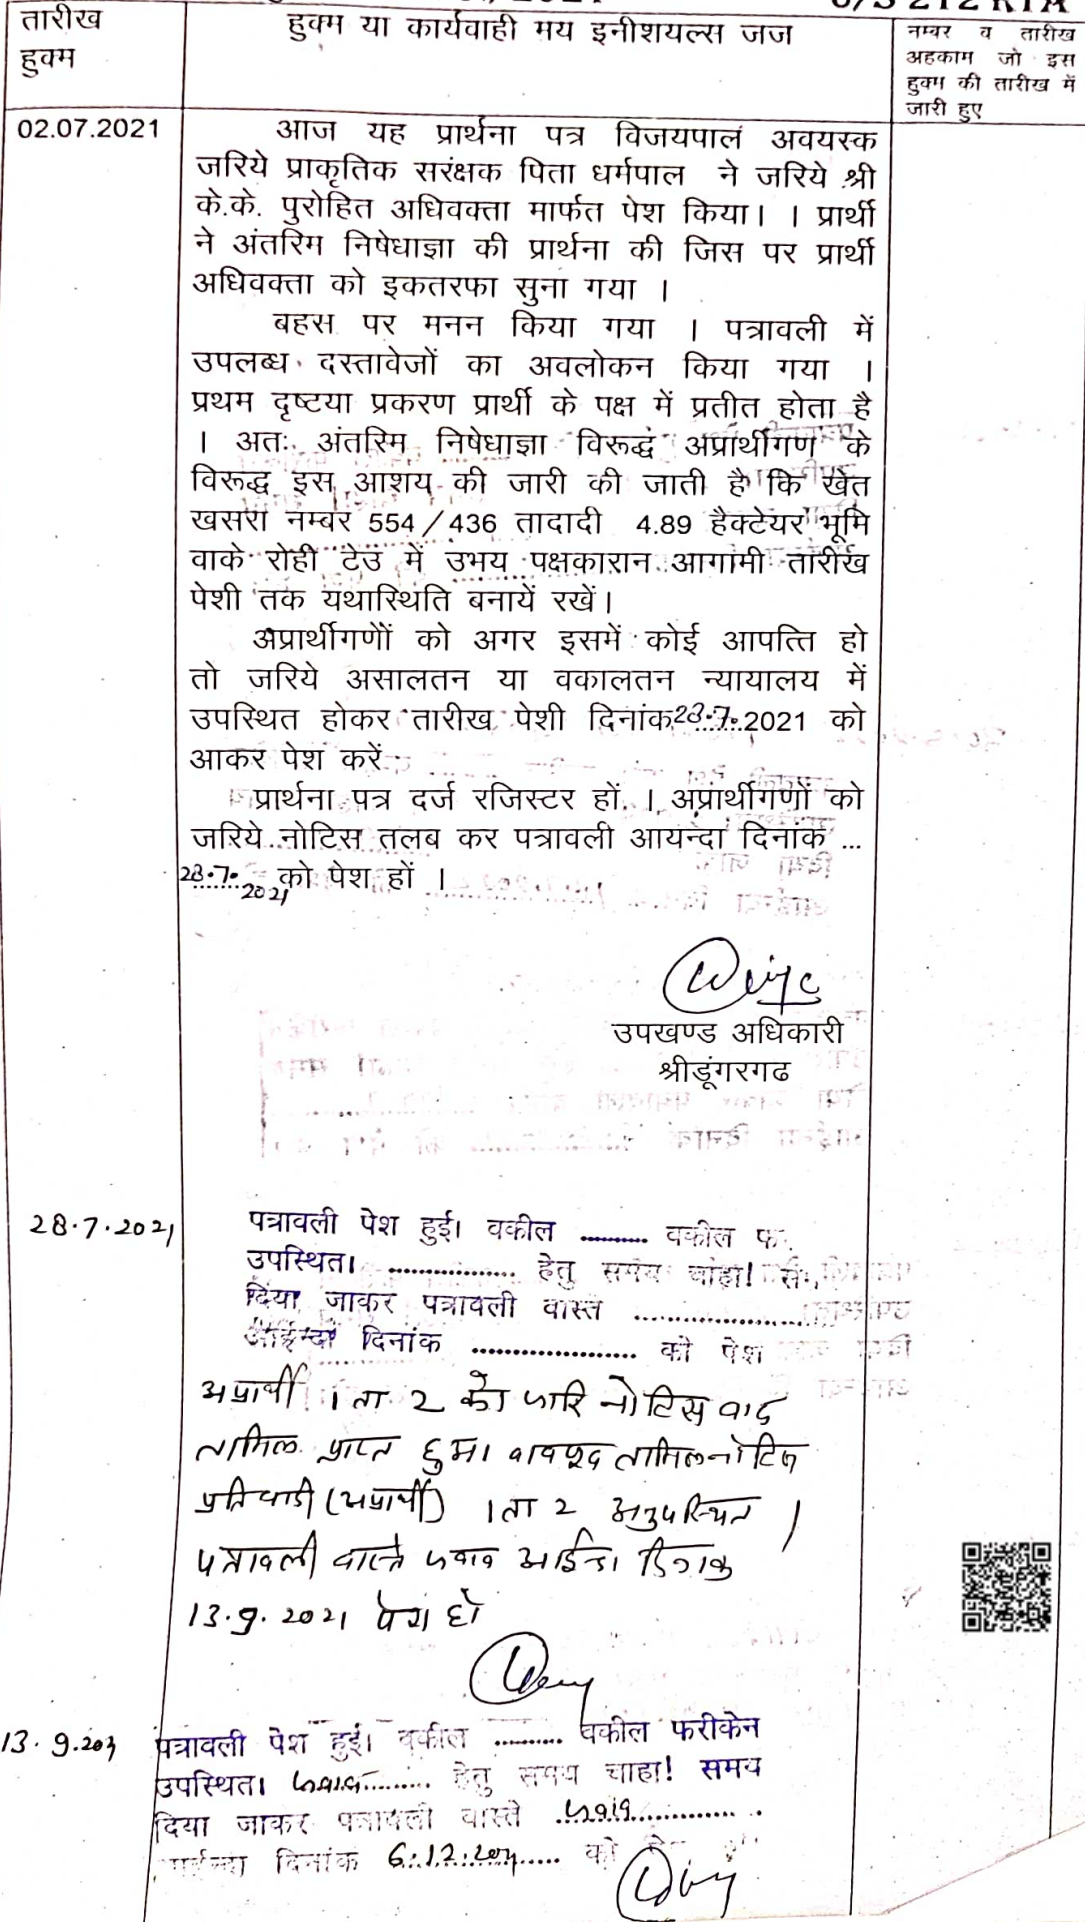 U/S 212 RTA
तारीख
हुक्म
हुक्म या कार्यवाही मय इनीशयल्स जज
नम्बर व तारीख
अहकाम जो इस
हुक्म की तारीख में
जारी हुए
02.07.2021
आज यह प्रार्थना पत्र विजयपाल अवयस्क
जरिये प्राकृतिक सरंक्षक पिता धर्मपाल ने जरिये श्री
के.के. पुरोहित अधिवक्ता मार्फत पेश किया। । प्रार्थी
ने अंतरिम निषेधाज्ञा की प्रार्थना की जिस पर प्रार्थी
अधिवक्ता को इकतरफा सुना गया ।
बहस पर मनन किया गया । पत्रावली में
उपलब्ध दस्तावेजों का अवलोकन किया गया ।
प्रथम दृष्टया प्रकरण प्रार्थी के पक्ष में प्रतीत होता है
। अतः अंतरिम निषेधाज्ञा विरूद्ध अप्रार्थीगण के
विरूद्ध इस आशय की जारी की जाती है कि खेत
खसरा नम्बर 554/436 तादादी 4.89 हैक्टेयर भूमि
वाके रोही टेउ में उभय पक्षकारान आगामी तारीख
पेशी तक यथास्थिति बनायें रखें।
अप्रार्थीगणों को अगर इसमें कोई आपत्ति हो
तो जरिये असालतन या वकालतन न्यायालय में
उपस्थित होकर तारीख पेशी दिनांक 28.7.2021 को
आकर पेश करें
प्रार्थना पत्र दर्ज रजिस्टर हों. । अप्रार्थीगणों को
जरिये नोटिस तलब कर पत्रावली आयन्दा दिनांक ...
28.7.2021 को पेश हों ।
उपखण्ड अधिकारी
श्रीडूंगरगढ
28.7.2021
पत्रावली पेश हुई। वकील .......... वकील फ
उपस्थित। .................. हेतु समय चाहा! स
दिया जाकर पत्रावली वास्ते .......................
आईन्दा दिनांक ....................... को पेश
अप्रार्थी 1 ता 2 को जरि नोटिस बाद
तामिल प्राप्त हुआ। बावजूद तामिल नोटिस
प्रतिवादी (अप्रार्थी) 1 ता 2 अनुपस्थित ।
पत्रावली वास्ते जवाब आईन्दा दिनांक
13.9.2021 पेश हो
13.9.2021
पत्रावली पेश हुई। वकील .......... वकील फरीकेन
उपस्थित। जवाब.......... हेतु समय चाहा! समय
दिया जाकर पत्रावली वास्ते जवाब..............
आईन्दा दिनांक 6.12.2021...... को